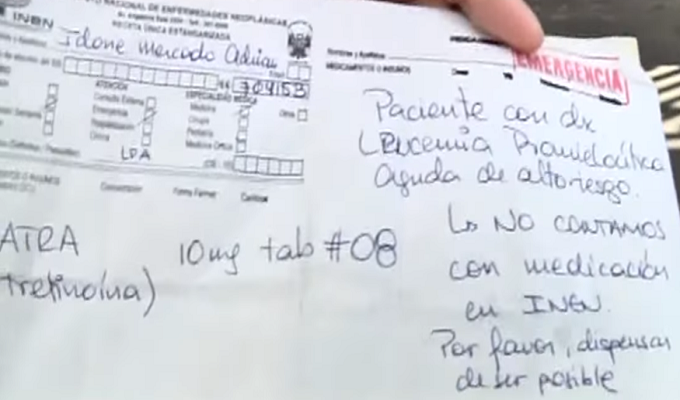 NACIONAL DE ENFERMEDADES NEOPLÁSICAS
RECETA ÚNICA ESTANDARIZADA
INEN
Idone Mercado Adrian
704153
ATENCIÓN
ESPECIALIDAD MÉDICA
Consulta Externa
Emergencia
Medicina
Cirugía
Pediatría
LPA
ATRA 10mg tab #08
tretinoína)
MEDICAMENTOS O INSUMOS
EMERGENCIA
Paciente con dx
Leucemia Promielocítica
Aguda de alto riesgo.
↳ NO CONTAMOS
con medicación
en INEN.
Por favor, dispensar
de ser posible